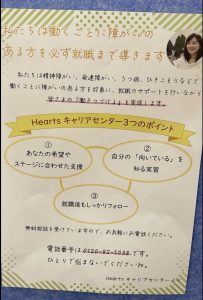 私たちは働くことに障がいの
ある方を必ず就職まで導きます
私たちは精神障がい、発達障がい、うつ病、ひきこもりなどで
働くことに障がいのある方を対象に、就職のサポートを行いながら
皆さまの「働きつづける」を実現します。
Heartsキャリアセンター3つのポイント
①
あなたの希望や
ステージに合わせた支援
②
自分の「向いている」を
知る実習
③
就職後もしっかりフォロー
無料相談も受けていますので、お気軽にお電話ください。
電話番号は0120-82-5038です。
ひとりで悩まないでくださいね。
Heartsキャリアセンター